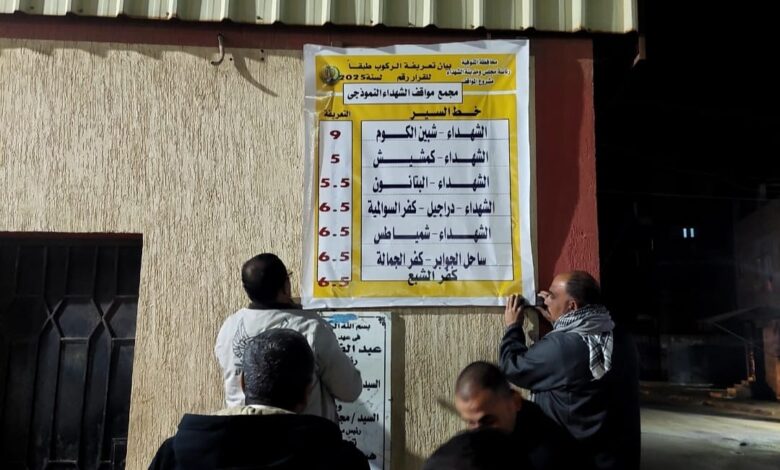 محافظة المنوفية
رئاسة مجلس ومدينة الشهداء
مشروع المواقف
بيان تعريفة الركوب طبقاً
للقرار رقم لسنة 2025
مجمع مواقف الشهداء النموذجى
خط السير التعريفة
الشهداء - شبين الكوم 9
الشهداء - كمشيش 5
الشهداء - البتانون 5.5
الشهداء - دراجيل - كفر السوالمية 6.5
الشهداء - شمياطس 6.5
ساحل الجوابر - كفر الجمالة 6.5
كفر الشبع 6.5
بسم الله
فى عهد
عبد
السيد
السيد /